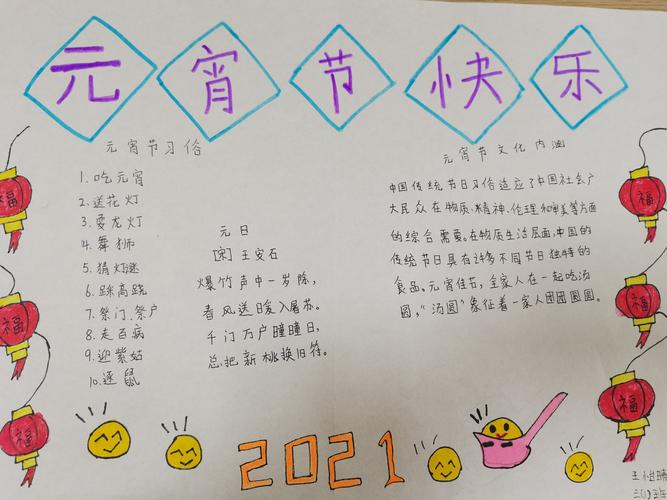 元宵节快乐
元宵节习俗
1.吃元宵
2.送花灯
3.耍龙灯
4.舞狮
5.猜灯谜
6.踩高跷
7.祭门、祭户
8.走百病
9.迎紫姑
10.逐鼠
元日
[宋]王安石
爆竹声中一岁除，
春风送暖入屠苏。
千门万户曈曈日，
总把新桃换旧符。
元宵节文化内涵
中国传统节日习俗适应了中国社会广
大民众在物质、精神、伦理和审美等方面
的综合需要。在物质生活层面，中国的
传统节日具有许多不同节日独特的
食品。元宵佳节，全家人在一起吃汤
圆，“汤圆”象征着一家人团团圆圆。
福
福
福
福
福
福
2021
王
三(1)班